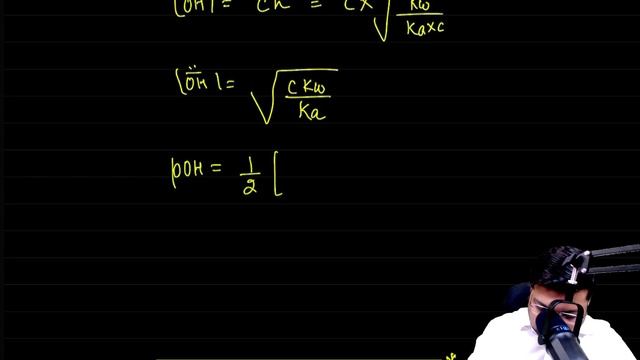 [OH] = Ch = C × √(Kw / Ka×C)
[ŌH] = √(CKw / Ka)
pOH = 1/2 [